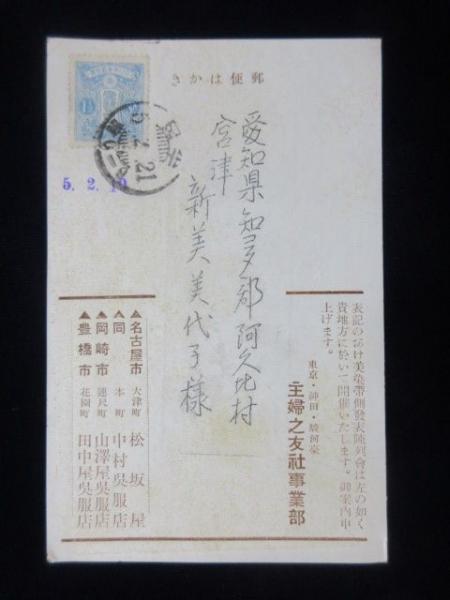 郵便はかき
1½
5.2.21
5.2.19
愛知県知多郡阿久比村
宮津
新美美代子様
貴地方に於いて開催いたします。御案内申
上げます。
東京・神田・駿河臺
主婦之友社事業部
▲名古屋市 大津町 松坂屋
▲同 本町 中村呉服店
▲岡崎市 連尺町 山澤屋呉服店
▲豊橋市 花園町 田中屋呉服店